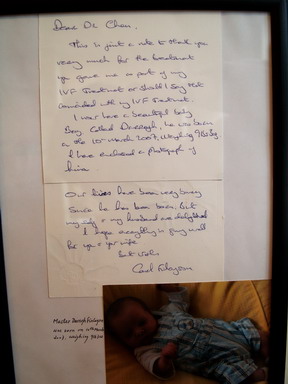 Dear Dr Chen,
This is just a note to thank you
very much for the treatment
you gave me as part of my
IVF Treatment or should I say that
coincided with my IVF Treatment.
I now have a beautiful baby
Boy called Darragh, he was born
on the 10th March 2007, weighing 9lbs
I have enclosed a photograph of
him.
Our lives have been very busy
since he has been born, but
my &amp; my husband are delighted
I hope everything is going well
for you &amp; your wife
Best Wishes
Carol
Master Darragh
was born on March
weighing